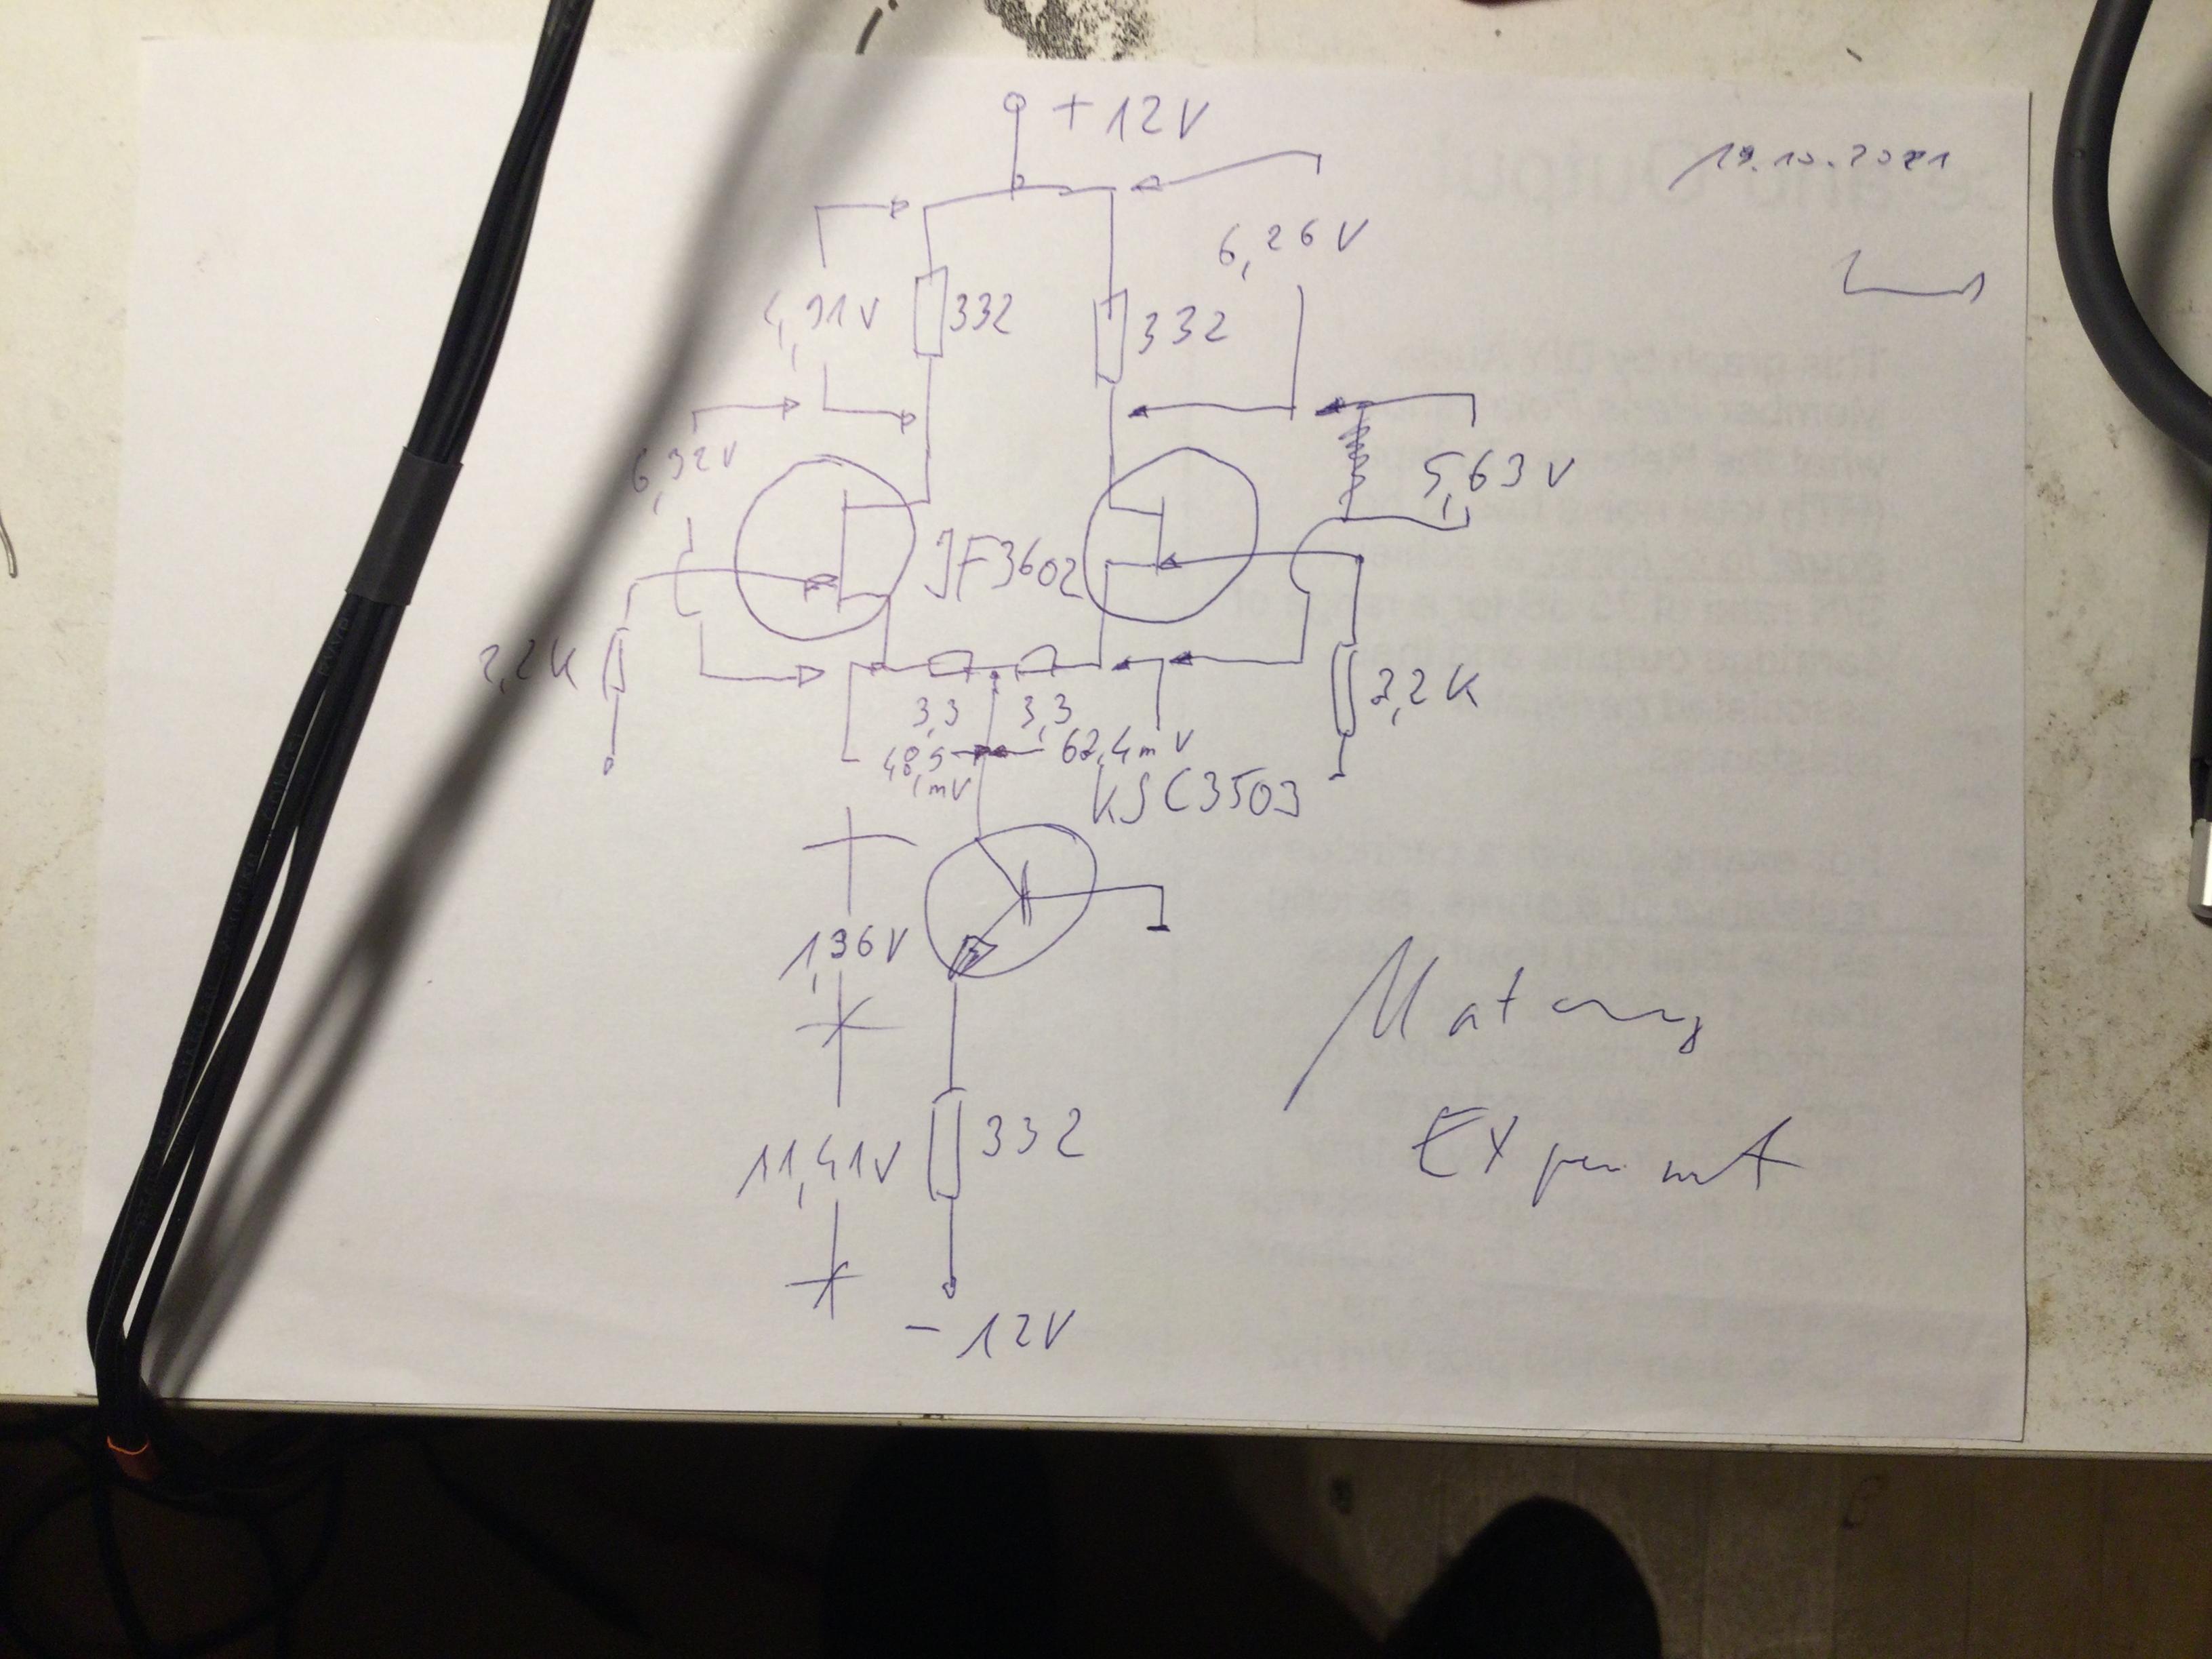 +12V
19.10.2021
6,26V
4,91V
332
332
6,92V
5,63V
JF3602
2,2K
3,3
3,3
2,2K
48,5
mV
62,4mV
KSC3503
1,96V
11,41V
332
-12V